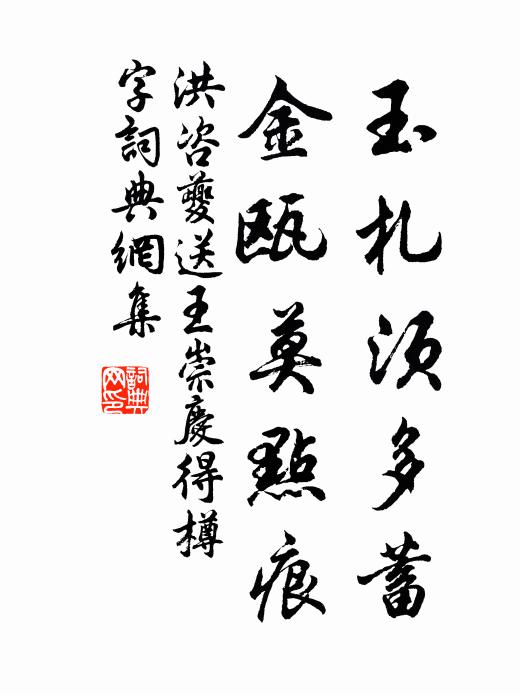 玉札須多蓄
金甌莫點痕
洪咨夔送王崇慶得樽
字詞典網集
詞典
网印